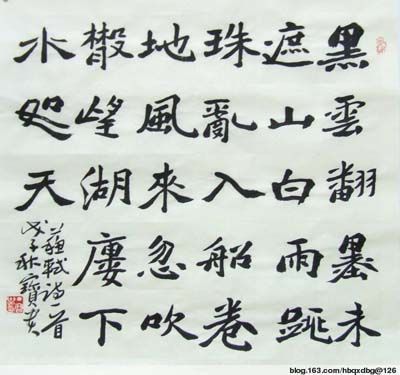 黑雲翻墨未
遮山白雨跳
珠亂入船卷
地風來忽吹
散望湖廔下
水如天
蘇軾詩首
戊子秋寶
blog.163.com/hbqxdbg@126